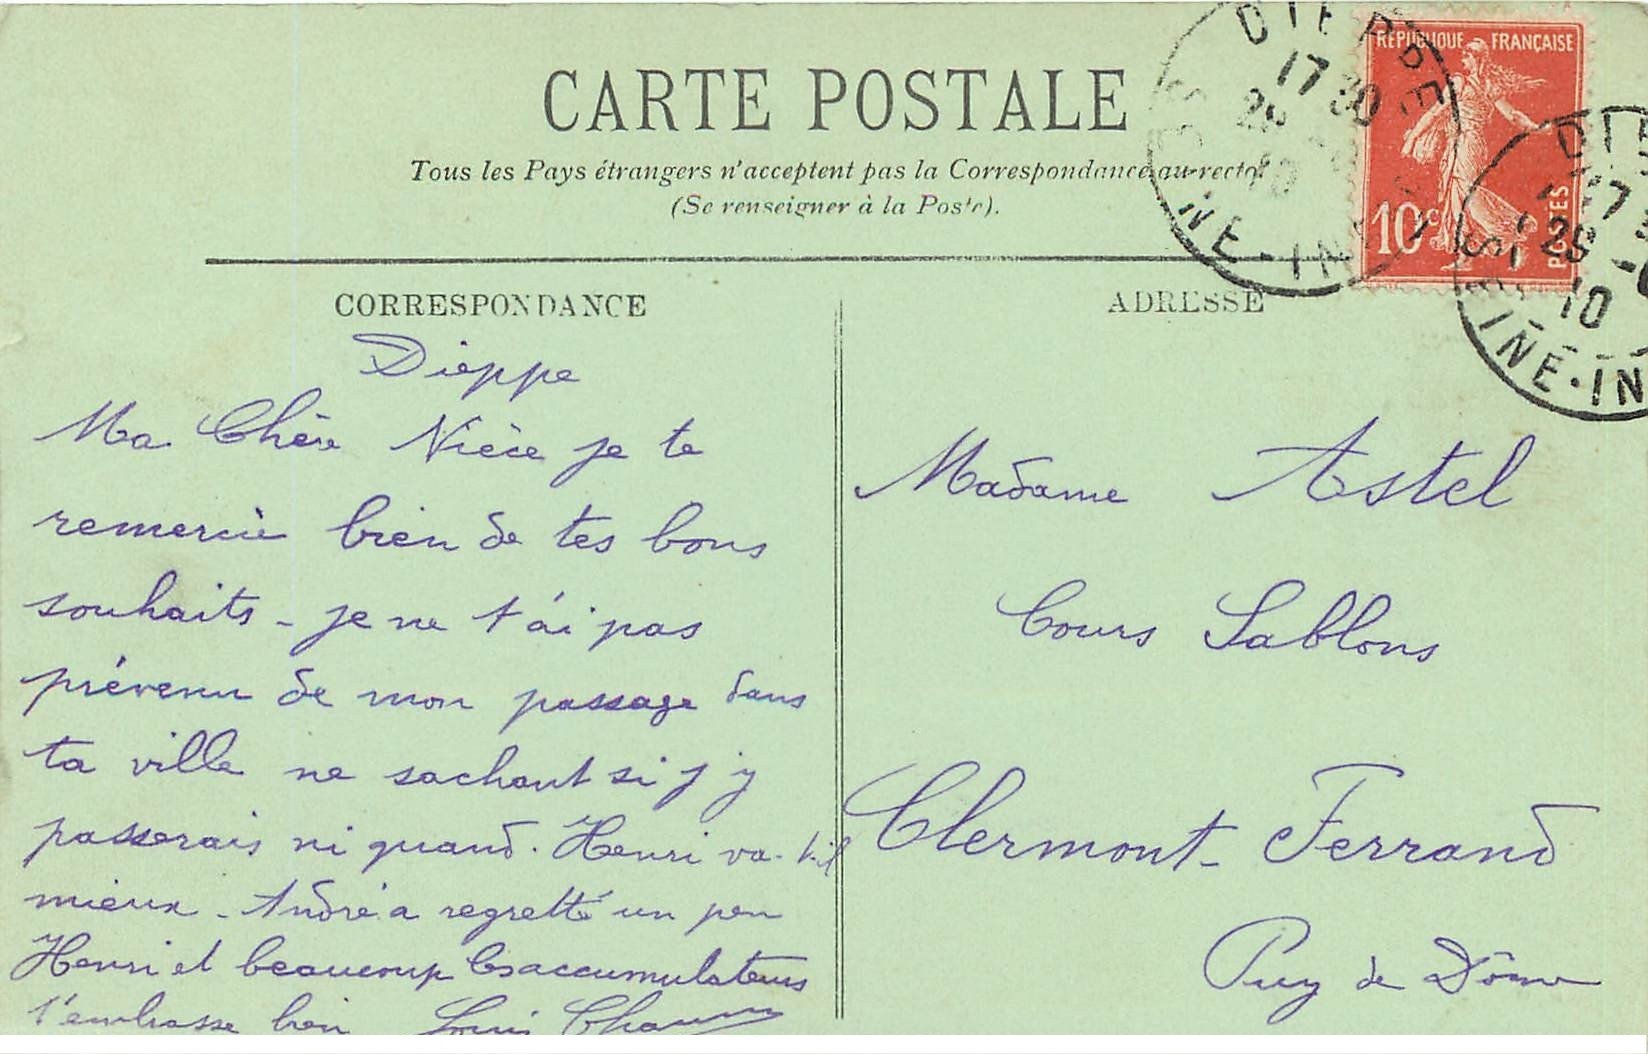 CARTE POSTALE
Tous les Pays étrangers n'acceptent pas la Correspondance au recto!
(Se renseigner à la Poste).
RÉPUBLIQUE FRANÇAISE
10c
POSTES
DIEPPE
17 30
28
10
SEINE-INF
DIE
17 3
28 -6
10
SEINE-IN
CORRESPONDANCE
Dieppe
Ma Chère Nièce je te
remercie bien de tes bons
souhaits - je ne t'ai pas
prévenu de mon passage dans
ta ville ne sachant si j'y
passerais ni quand. Henri va-t-il
mieux - André a regretté un peu
Henri et beaucoup les accumulateurs
t'embrasse bien Louis
ADRESSE
Madame Astel
Cours Sablons
Clermont-Ferrand
Puy de Dôme